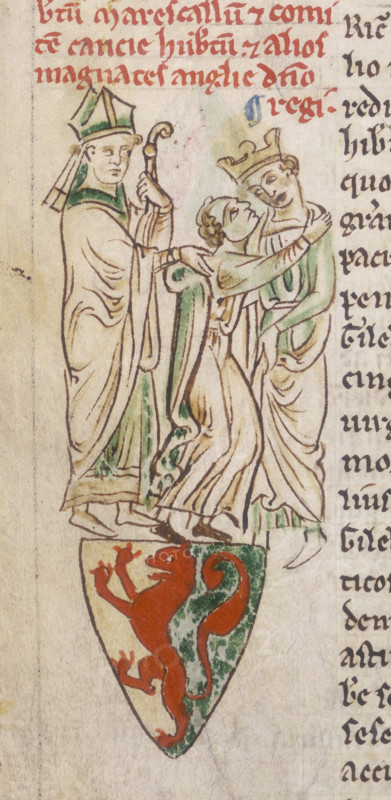 b'tū marescallū ⁊ comi
tē cancie hub'tū ⁊ alios
magnates anglie dn̄o
¶ regi.
Ric̄
lio
redi
hib'
quo
gr̄a
paci
pem
Gile
cinq
uirg
mo
lius
Gile
ticos
dem
asti
b'e se
sese
accu